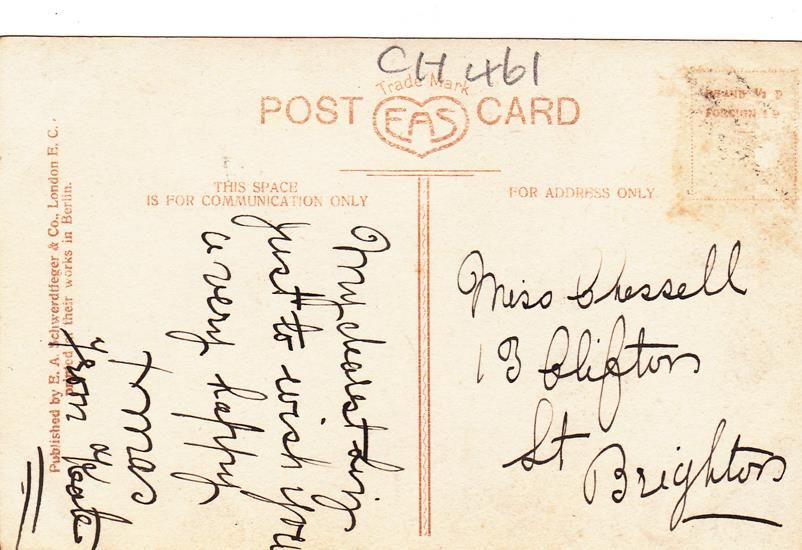 CH 461
Trade Mark
POST CARD
EAS
THIS SPACE
IS FOR COMMUNICATION ONLY
FOR ADDRESS ONLY
INLAND ½ D
FOREIGN 1 D
Published by E. A. Schwerdtfeger & Co., London E. C.
printed at their works in Berlin.
My dearest
just to wish you
a very happy
Xmas
from
Miss Chessell
13 Clifton
St
Brighton